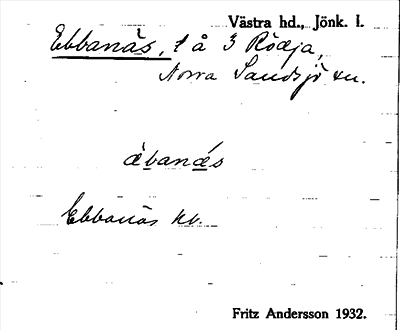 Västra hd., Jönk. l.
Ebbanäs, 1 å 3 Rödja,
Norra Sandsjö sn.
ǽbanǽs
Ebbanäs kv.
Fritz Andersson 1932.